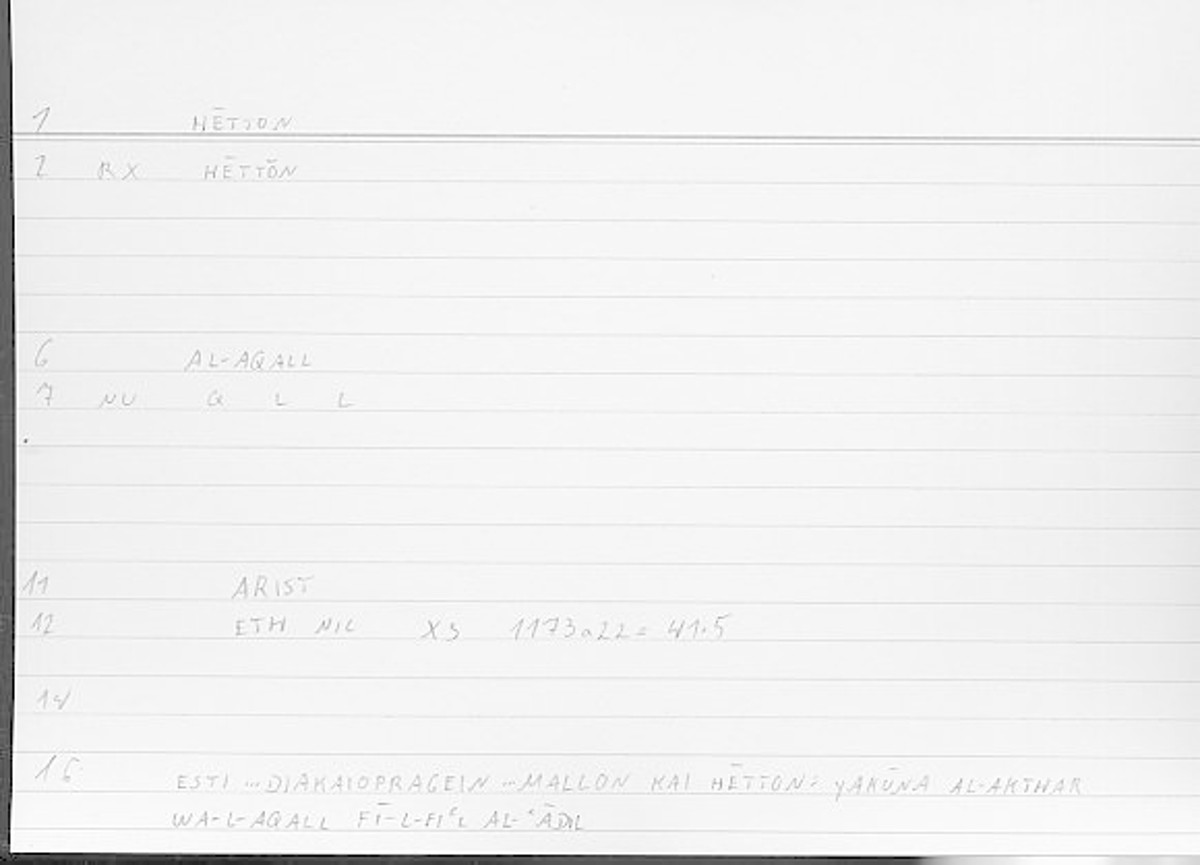 1 HĒTTON
2 RX HĒTTŎN
6 AL-AQALL
7 NU Q L L
11 ARIST
12 ETH NIC X3 1173a22= 41.5
14
16 ESTI ...DIAKAIOPRAGEIN ...MALLON KAI HĒTTON: YAKŪNA AL-AKTHAR
WA-L-AQALL FĪ-L-FIʿL AL-ʿĀDIL